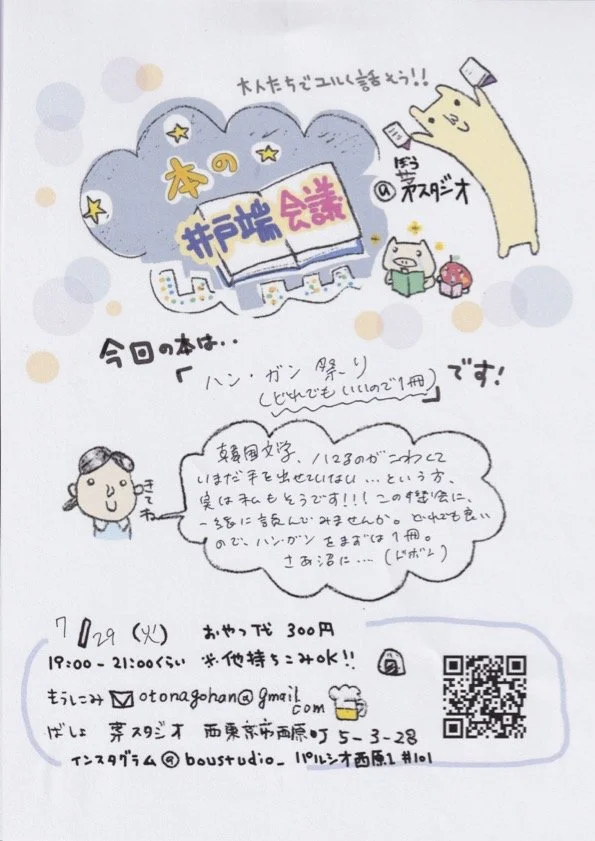 大人たちでユルく話そう!!
本の
井戸端会議
ぼう
@茅スタジオ
今回の本は‥
「ハン・ガン祭り
(どれでもいいので1冊)」です!
韓国文学、ハマるのがこわくて
いまだ手を出せていない…という方、
実は私もそうです!!! この機会に、
一緒に読んでみませんか。どれでも良い
ので、ハン・ガンをまずは1冊。
さあ沼に…(ドボン)
きてね
7/29(火) おやつ代 300円
19:00-21:00くらい ※他持ちこみOK!!
もうしこみ otonagohan@gmail
com
ばしょ 茅スタジオ 西東京市西原町5-3-28
インスタグラム@boustudio_ パルシオ西原1 #101